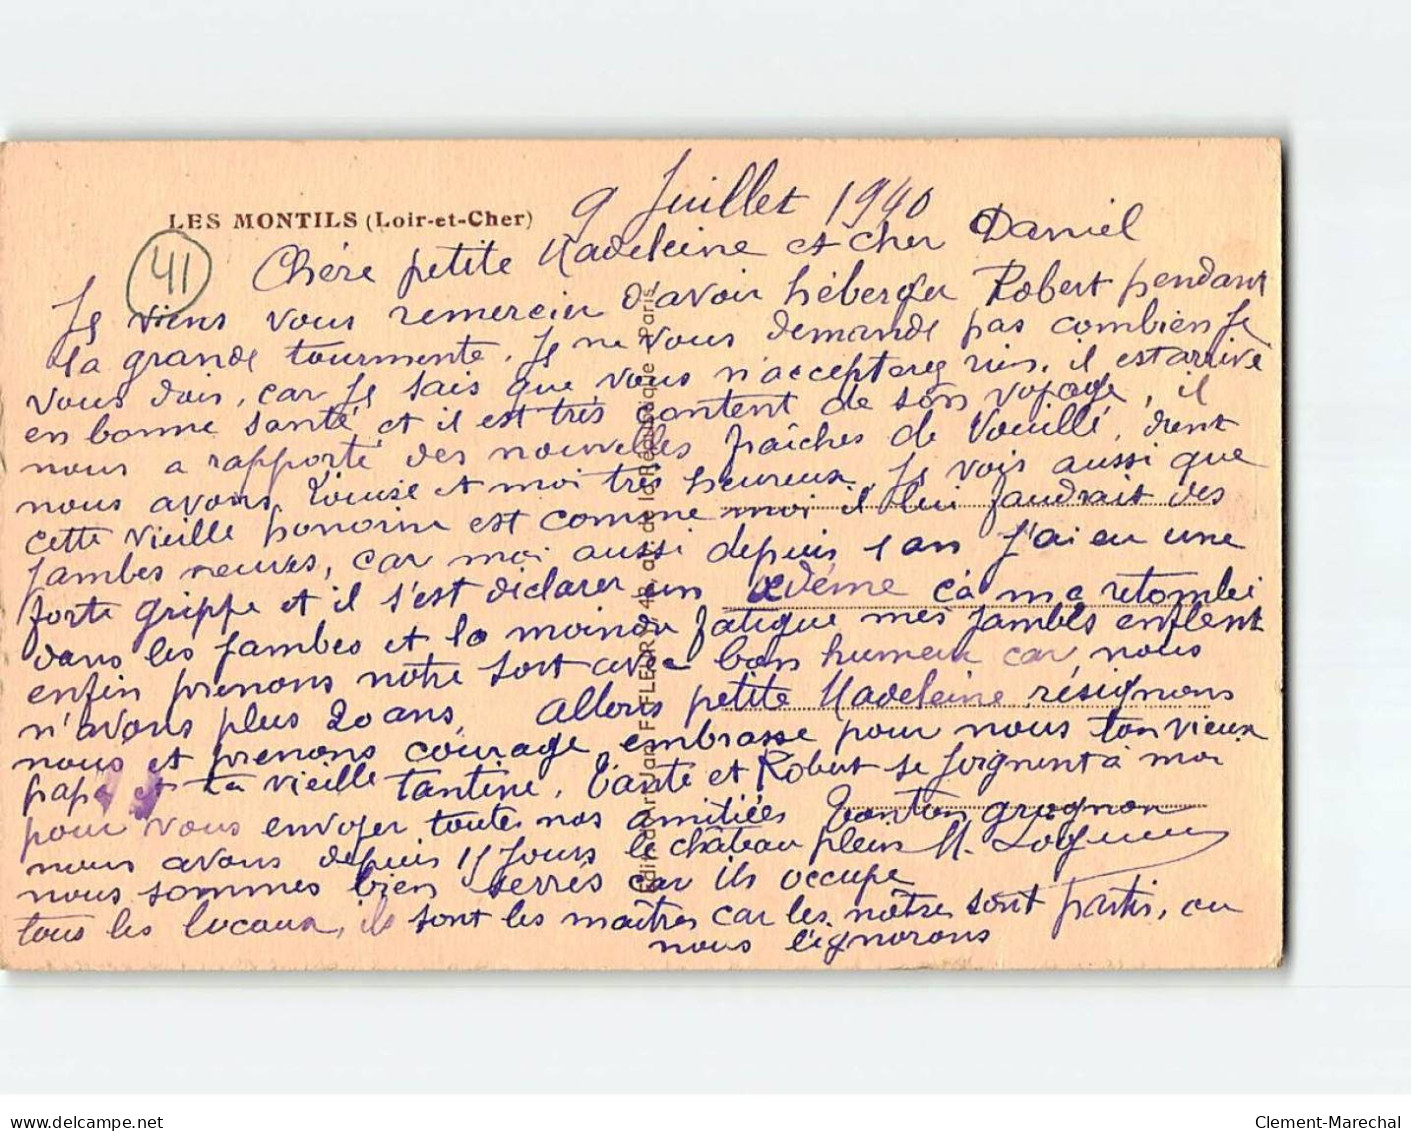 9 Juillet 1940
LES MONTILS (Loir-et-Cher)
41
Chére petite Madeleine et cher Daniel
Je viens vous remercier d'avoir héberger Robert pendant
la grande tourmente. Je ne vous demande pas combien Je
vous dois, car Je sais que vous n'accepterez rien. il est arrivé
en bonne santé et il est très content de son voyage, il
nous a rapporté des nouvelles fraîches de Vouillé, dont
nous avons Louise et moi très heureux. Je vois aussi que
cette vieille honorine est comme moi il lui faudrait des
Jambes neuves, car moi aussi depuis 1 an J'ai eu une
forte grippe et il s'est déclarer un œdéme ça me retombé
dans les Jambes et la moindre fatigue mes Jambes enflent
enfin prenons notre sort avec bon humeur car nous
n'avons plus 20 ans. Allons petite Madeleine résignons
nous et prenons courage embrasse pour nous ton vieux
papa et ta vieille tantine. Tante et Robert se Joignent à moi
pour vous envoyer toutes nos amitiées Tonton grognon
nous avons depuis 15 Jours le château plein
nous sommes bien serrés car ils occupe
tous les locaux, ils sont les maîtres car les nôtres sont partis, ou
nous l'ignorons
Clement-Marechal
www.delcampe.net